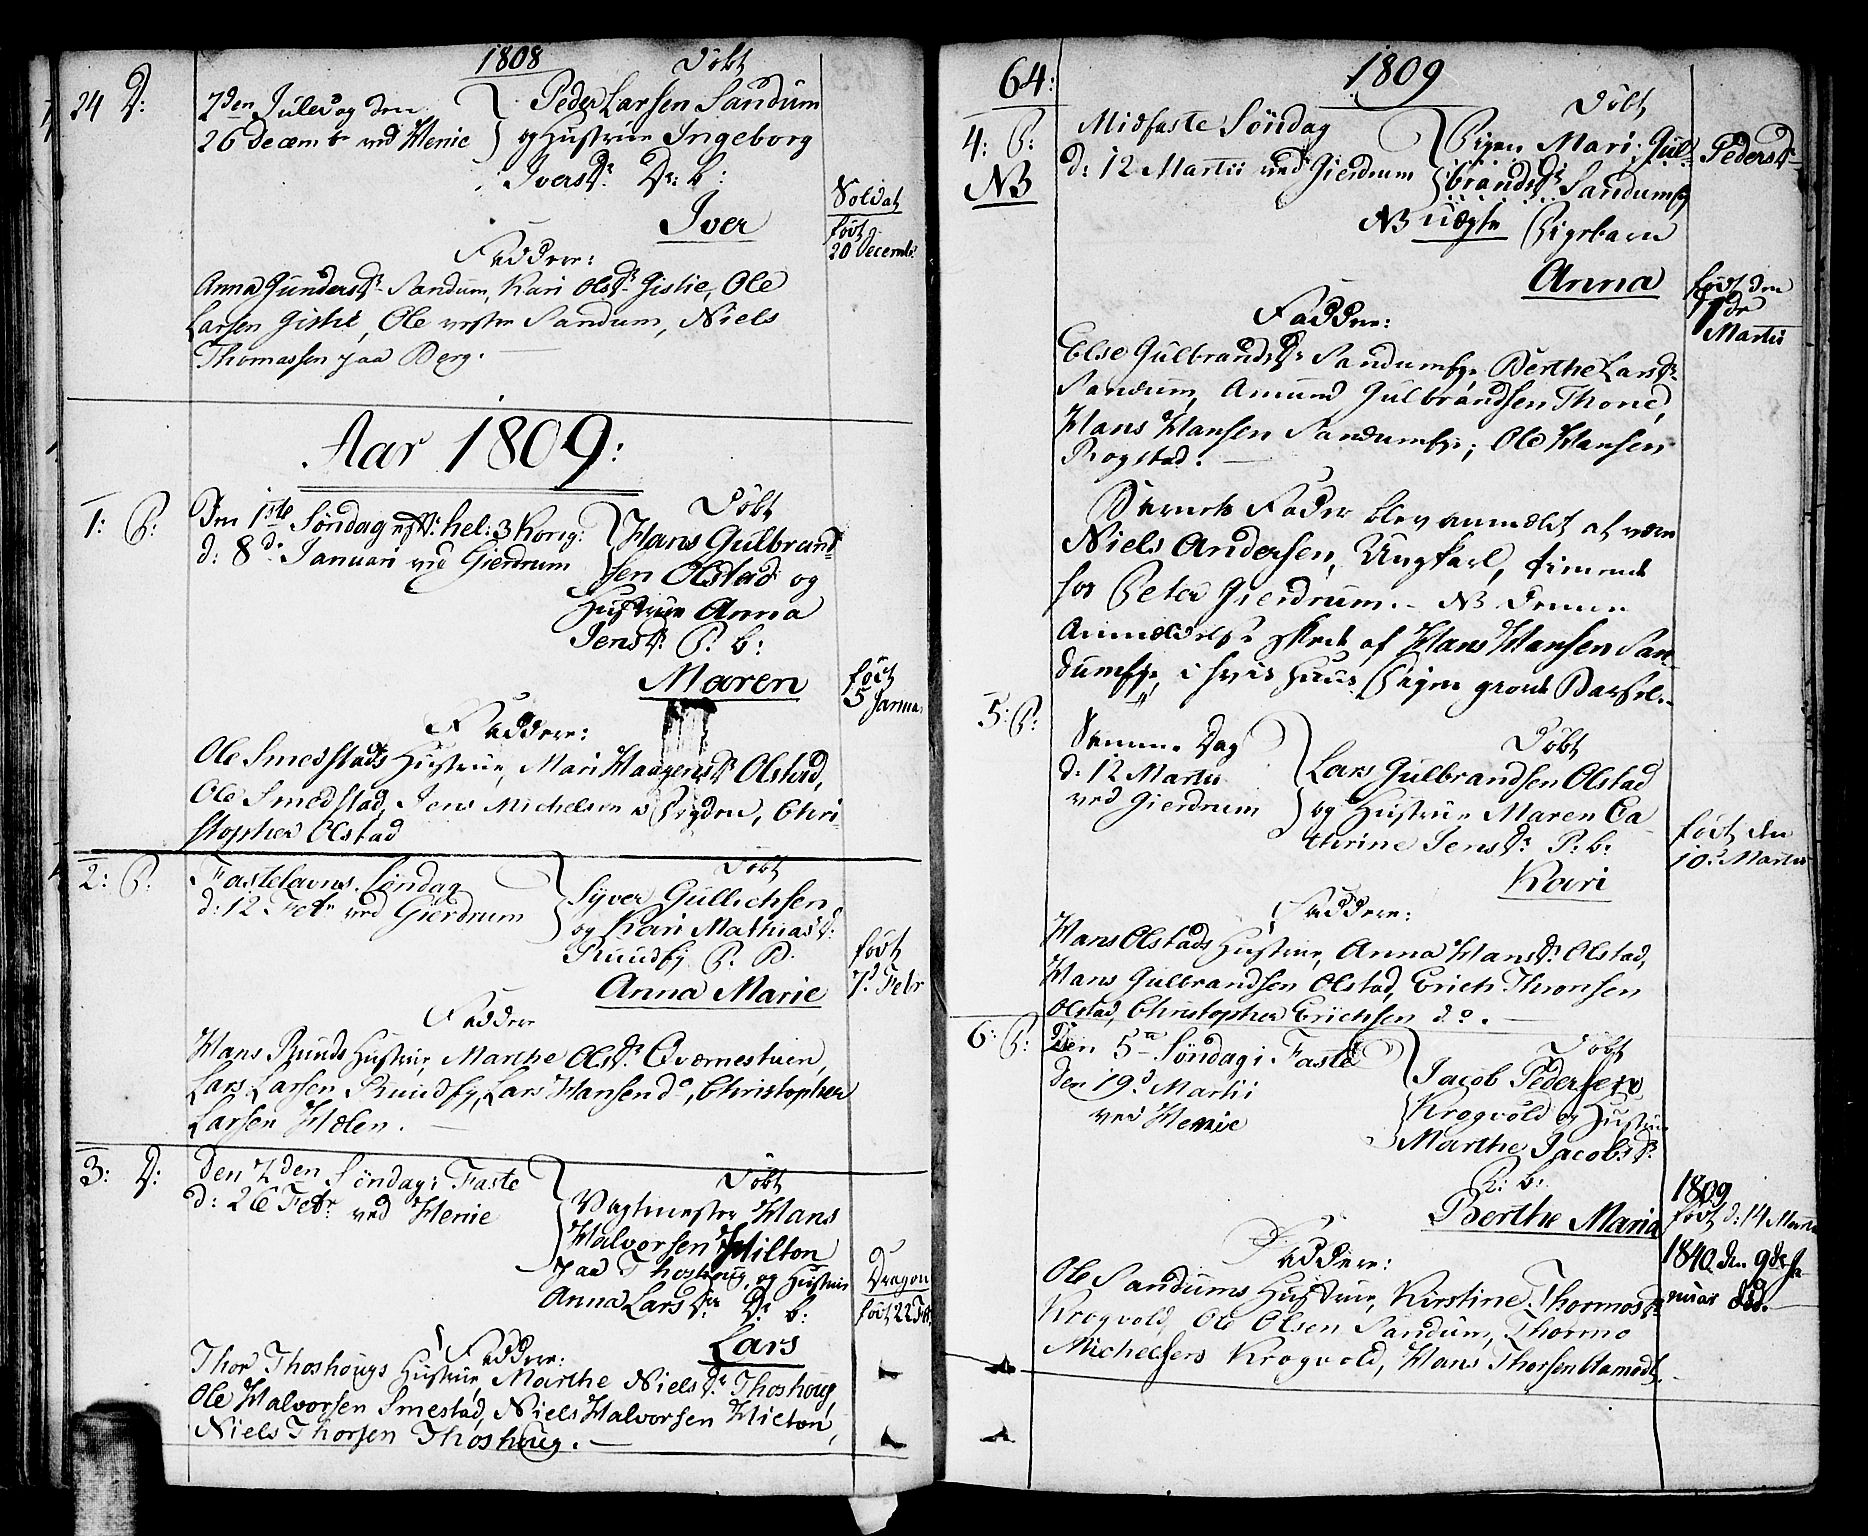 1808
Döbt
24 D:
2den Juledag den
26 Decembr ved Henie
Peder Larsen Sandum
og Hustrue Ingeborg
Iversdr: Dr: b:
Iver
Soldat
födt
20 Decemb:
Faddere:
Anna Gundersdr. Sandum, Kari Olsdr Gistie, Ole
Larsen Gistie, Ole vestre Sandum, Niels
Thomassen paa Berg.
Aar 1809:
1: P:
Döbt
Den 1ste Söndag eft: hel: 3 Kong:
d: 8de Januari ved Gierdrum
Hans Gulbrand-
sen Olstad og
Hustrue Anna
Jensdr: P. b:
Maren
födt
5 Janua:
Faddere:
Ole Smedstads Hustrue, Mari Haagensdr Olstad,
Ole Smedstad, Jens Michelsen, Chri-
stopher Olstad
2: P:
Döbt
Fastelavns Söndag
d: 12 Febr ved Gierdrum
Syver Gullichsen
og Kari Mathiasdr:
Ruudby P. b.
Anna Marie
födt
7d Febr
Faddere
Hans Ruuds Hustrue, Marthe Olsdr. Qværnestuen,
Lars Larsen Ruudby, Lars Hansen do, Christopher
Larsen Hælen.
3: D:
Döbt
Den 2den Söndag i Faste
d: 26 Febr. ved Henie
Vagtmester Hans
Halvorsen Hilton
paa Thoshoug og Hustrue
Anna Larsdr Dr b:
Lars
Dragon
födt 22 Feb.
Faddere:
Thor Thoshougs Hustrue, Marthe Nielsdr Thoshoug,
Ole Halvorsen Smestad, Niels Halvorsen Hilton,
Niels Thorsen Thoshoug.
64:
1809
Döbt
4: P:
NB
Midfaste Söndag
d: 12 Martii ved Gierdrum
Pigen Mari Gul-
brandsdr Sandumby
Pedersdr
NB uægte Pigebarn
Anna
födt den
7de
Martii
Faddere:
Else Gulbrandsdr Sandumby, Berthe Larsdr.
Sandum, Amund Gulbrandsen Thone,
Hans Hansen Sandumby; Ole Hansen
Rogstad.
Barnets Fader blev anmeldt at være
Niels Andersen, Ungkarl, tienende
hos Peter Gierdrum. NB denne
Anmeldelse skede af Hans Hansen San-
dumby, i hvis Huus Pigen giorde Barsel.
5: P:
Samme Dag
d: 12 Martii
ved Gierdrum
Döbt
Lars Gulbrandsen Olstad
og Hustrue Maren Ca-
thrine Jensdr P: b:
Kari
födt den
10d Martii
Faddere:
Hans Olstads Hustrue, Anna Hansdr Olstad,
Hans Gulbrandsen Olstad, Erich Thronsen
Olstad, Christopher Erichsen do.
6: P:
Döbt
Den 5te Söndag i Faste
den 19d Martii
ved Henie
Jacob Pedersen
Krogvold og Hustrue
Marthe Jacobsdr.
P: b:
Berthe Maria
1809
födt d: 14 Martii
1840 den 9de Ja-
nuar död.
Faddere:
Ole Sandums Hustrue, Kirstine Thormosdr
Krogvold, Ole Olsen Sandum, Thormo
Michelsen Krogvold, Hans Thorsen Ramodt.